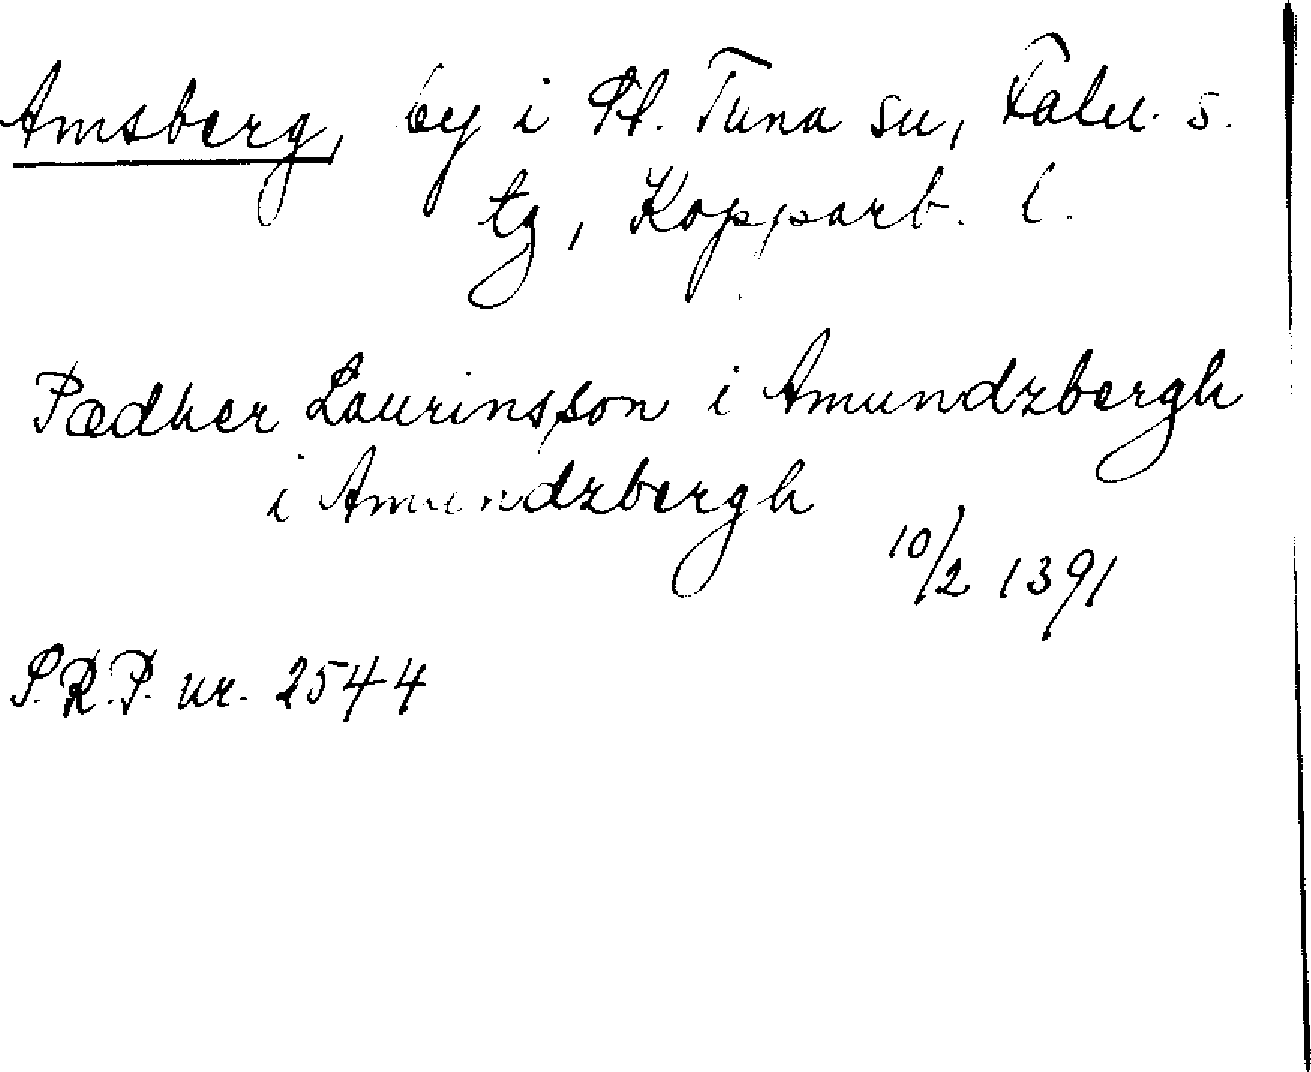 Amsberg, by i St. Tuna sn, Falu. s.
tg, Kopparb. l.
Pædher Laurinsson i Amundzbergh
i Amundzbergh
10/2 1391
S.R.P. nr. 2544